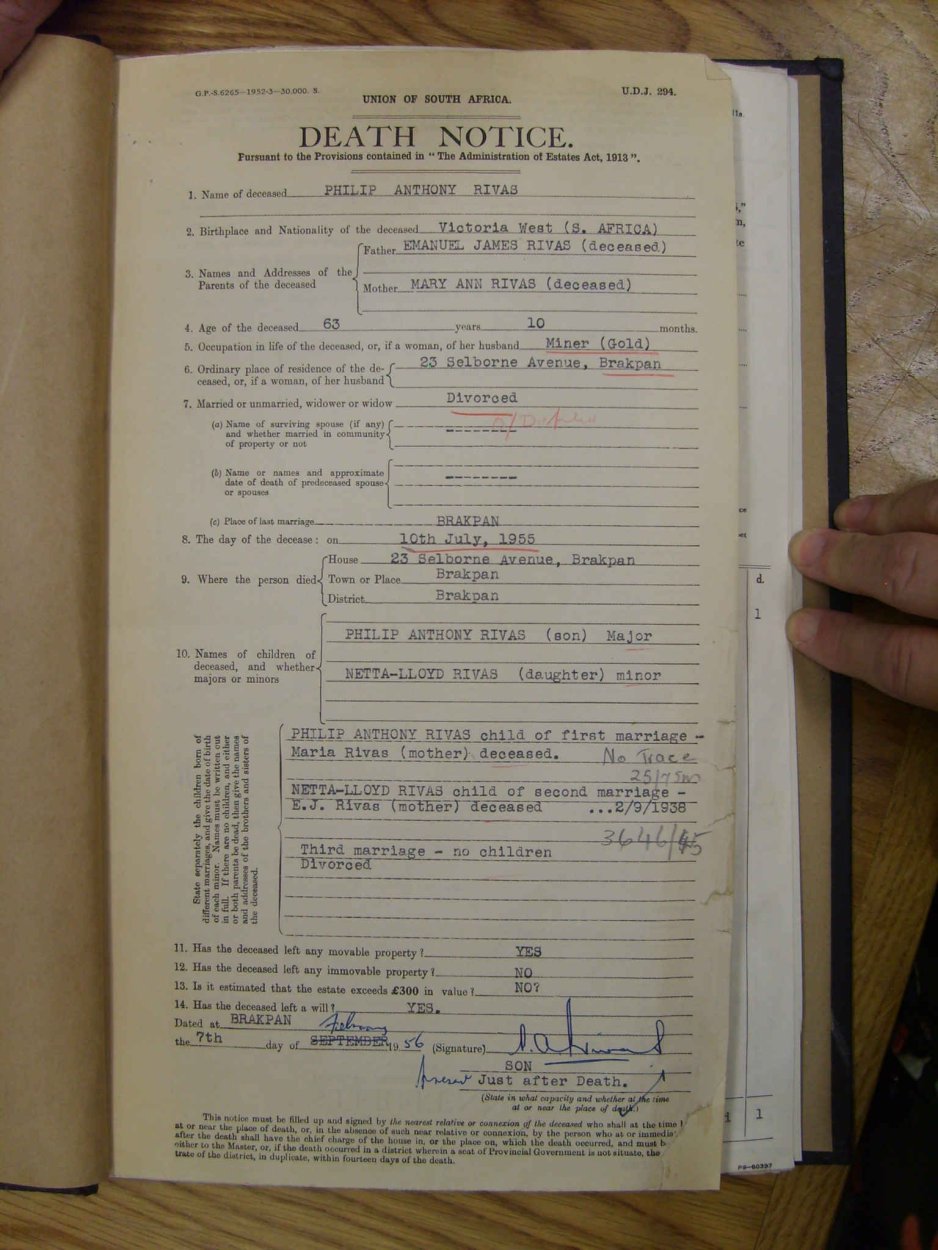 G.P.-S.6265—1952-3—30,000. S.
U.D.J. 294.
UNION OF SOUTH AFRICA.
DEATH NOTICE.
Pursuant to the Provisions contained in " The Administration of Estates Act, 1913 ".
1. Name of deceased PHILIP ANTHONY RIVAS
2. Birthplace and Nationality of the deceased Victoria West (S. AFRICA)
3. Names and Addresses of the Parents of the deceased
Father EMANUEL JAMES RIVAS (deceased)
Mother MARY ANN RIVAS (deceased)
4. Age of the deceased 63 years 10 months.
5. Occupation in life of the deceased, or, if a woman, of her husband Miner (Gold)
6. Ordinary place of residence of the de-
ceased, or, if a woman, of her husband
23 Selborne Avenue, Brakpan
7. Married or unmarried, widower or widow Divorced
(a) Name of surviving spouse (if any)
and whether married in community
of property or not
--------
(b) Name or names and approximate
date of death of predeceased spouse
or spouses
--------
(c) Place of last marriage BRAKPAN
8. The day of the decease : on 10th July, 1955
9. Where the person died
House 23 Selborne Avenue, Brakpan
Town or Place Brakpan
District Brakpan
10. Names of children of
deceased, and whether
majors or minors
PHILIP ANTHONY RIVAS (son) Major
NETTA-LLOYD RIVAS (daughter) minor
State separately the children born of
different marriages, and give the date of birth
of each minor. Names must be written out
in full. If there are no children, and either
or both parents be dead, then give the names
and addresses of the brothers and sisters of
the deceased.
PHILIP ANTHONY RIVAS child of first marriage -
Maria Rivas (mother) deceased. No Trace
25/7
NETTA-LLOYD RIVAS child of second marriage -
E.J. Rivas (mother) deceased ...2/9/1938
3646/45
Third marriage - no children
Divorced
11. Has the deceased left any movable property ? YES
12. Has the deceased left any immovable property ? NO
13. Is it estimated that the estate exceeds £300 in value ? NO?
14. Has the deceased left a will ? YES.
Dated at BRAKPAN
February
the 7th day of SEPTEMBER 19 56 (Signature)
SON
present Just after Death.
(State in what capacity and whether at the time
at or near the place of death.)
This notice must be filled up and signed by the nearest relative or connexion of the deceased who shall at the time
at or near the place of death, or, in the absence of such near relative or connexion, by the person who at or immedia
after the death shall have the chief charge of the house in, or the place on, which the death occurred, and must b
either to the Master, or, if the death occurred in a district wherein a seat of Provincial Government is not situate, the
trate of the district, in duplicate, within fourteen days of the death.
d.
1
1
PS-60397